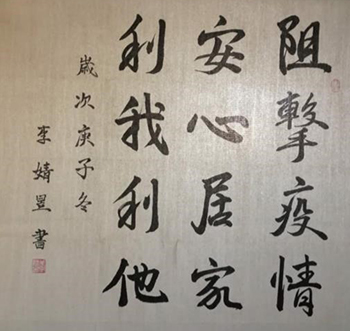 阻擊疫情
安心居家
利我利他
歲次庚子冬
李婧昱書